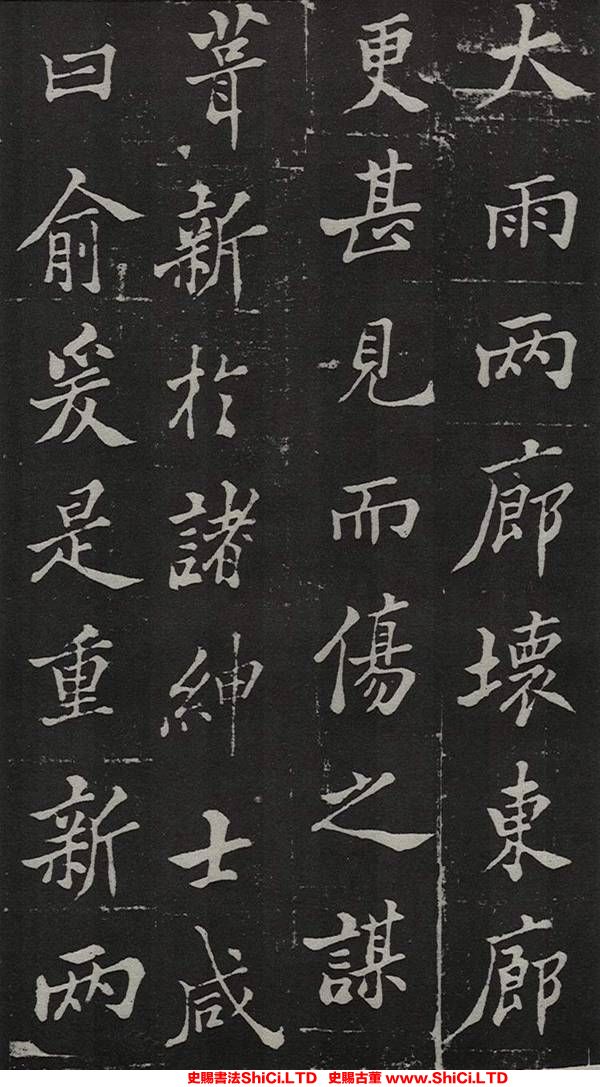 大雨两廊壞東廊
更甚見而傷之謀
葺新於諸紳士咸
曰俞爰是重新两
史賜書法ShiCi.LTD 史賜古董 www.ShiCi.LTD